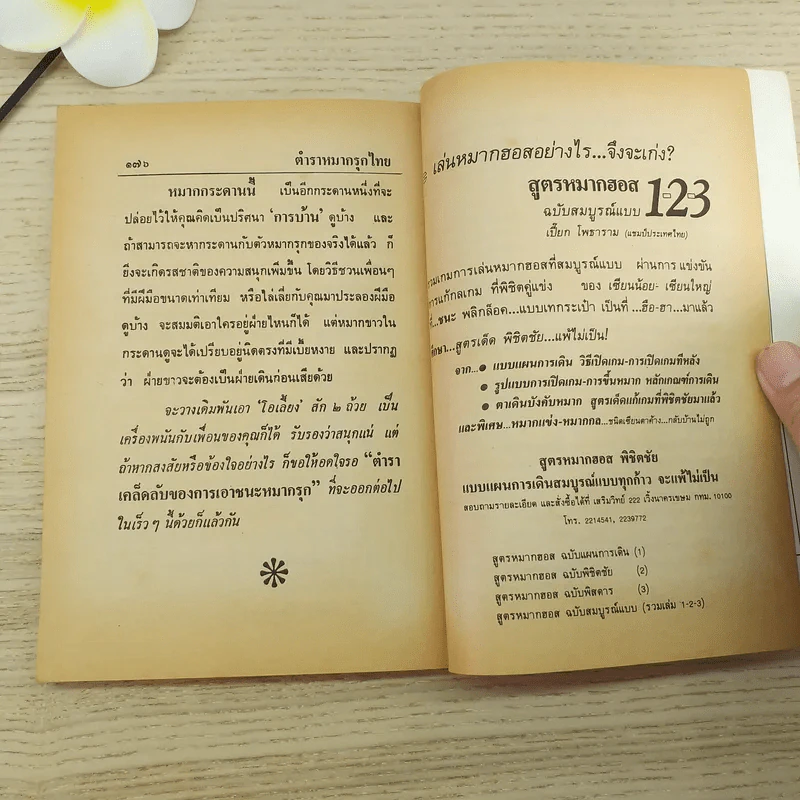 ๑๗๖ ตำราหมากรุกไทย
หมากกระดานนี้ เป็นอีกกระดานหนึ่งที่จะ
ปล่อยไว้ให้คุณคิดเป็นปริศนา 'การบ้าน' ดูบ้าง และ
ถ้าสามารถจะหากระดานกับตัวหมากรุกของจริงได้แล้ว ก็
ยิ่งจะเกิดรสชาติของความสนุกเพิ่มขึ้น โดยวิธีชวนเพื่อนๆ
ที่มีฝีมือขนาดเท่าเทียม หรือไล่เลี่ยกับคุณมาประลองฝีมือ
ดูบ้าง จะสมมติเอาใครอยู่ฝ่ายไหนก็ได้ แต่หมากขาวใน
กระดานดูจะได้เปรียบอยู่นิดตรงที่มีเบี้ยหงาย และปรากฏ
ว่า ฝ่ายขาวจะต้องเป็นฝ่ายเดินก่อนเสียด้วย
จะวางเดิมพันเอา 'โอเลี้ยง' สัก ๒ ถ้วย เป็น
เครื่องพนันกับเพื่อนของคุณก็ได้ รับรองว่าสนุกแน่ แต่
ถ้าหากสงสัยหรือข้องใจอย่างไร ก็ขอให้อดใจรอ "ตำรา
เคล็ดลับของการเอาชนะหมากรุก" ที่จะออกต่อไป
ในเร็วๆ นี้ด้วยก็แล้วกัน
เล่นหมากฮอสอย่างไร...จึงจะเก่ง?
สูตรหมากฮอส 1-2-3
ฉบับสมบูรณ์แบบ
เปี๊ยก โพธาราม (แชมป์ประเทศไทย)
รวมเกมการเล่นหมากฮอสที่สมบูรณ์แบบ ผ่านการแข่งขัน
การแก้กลเกม ที่พิชิตคู่แข่ง ของ เซียนน้อย- เซียนใหญ่
ที่...ชนะ พลิกล็อค...แบบเทกระเป๋า เป็นที่ ...ฮือ-ฮา...มาแล้ว
ศึกษา...สูตรเด็ด พิชิตชัย...แพ้ไม่เป็น!
จาก...● แบบแผนการเดิน วิธีเปิดเกม-การเปิดเกมทีหลัง
● รูปแบบการเปิดเกม-การขึ้นหมาก หลักเกณฑ์การเดิน
● ตาเดินบังคับหมาก สูตรเด็ดแก้เกมที่พิชิตชัยมาแล้ว
และพิเศษ...หมากแข่ง-หมากกล...ชนิดเซียนตาค้าง...กลับบ้านไม่ถูก
สูตรหมากฮอส พิชิตชัย
แบบแผนการเดินสมบูรณ์แบบทุกก้าว จะแพ้ไม่เป็น
สอบถามรายละเอียด และสั่งซื้อได้ที่ เสริมวิทย์ 222 เวิ้งนาครเขษม กทม. 10100
โทร. 2214541, 2239772
สูตรหมากฮอส ฉบับแผนการเดิน (1)
สูตรหมากฮอส ฉบับพิชิตชัย (2)
สูตรหมากฮอส ฉบับพิสดาร (3)
สูตรหมากฮอส ฉบับสมบูรณ์แบบ (รวมเล่ม 1-2-3)